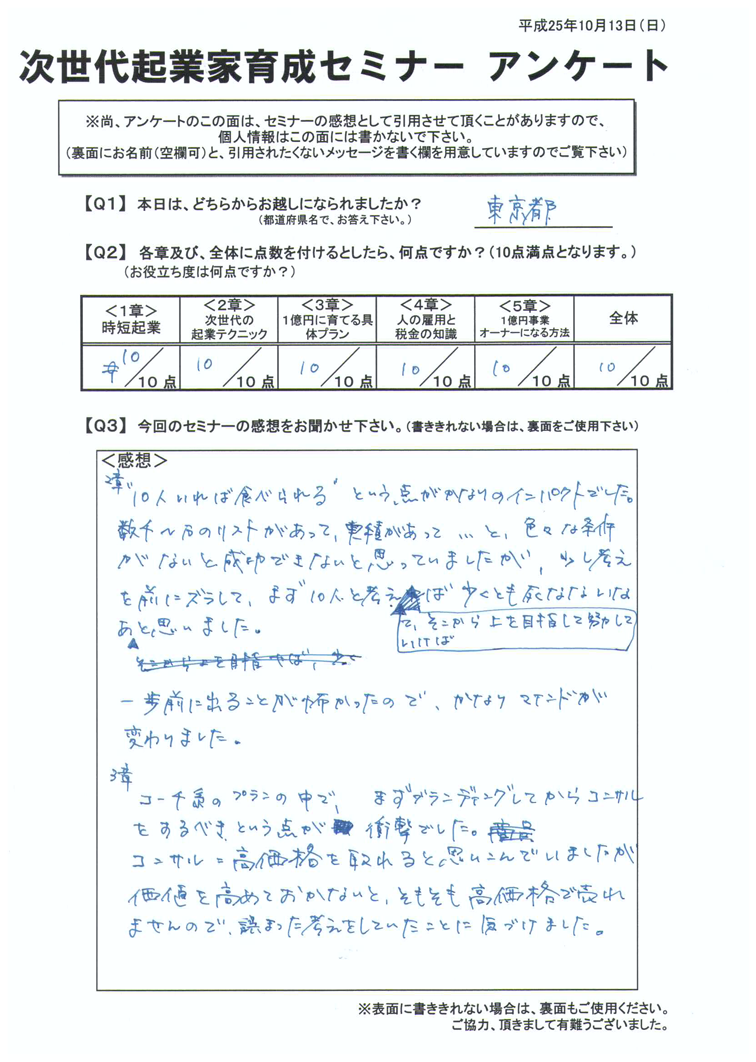 平成25年10月13日(日)
次世代起業家育成セミナー アンケート
※尚、アンケートのこの面は、セミナーの感想として引用させて頂くことがありますので、
個人情報はこの面には書かないで下さい。
(裏面にお名前(空欄可)と、引用されたくないメッセージを書く欄を用意していますのでご覧下さい)
【Q1】 本日は、どちらからお越しになられましたか? 東京都
(都道府県名で、お答え下さい。)
【Q2】 各章及び、全体に点数を付けるとしたら、何点ですか?(10点満点となります。)
(お役立ち度は何点ですか?)
<1章> <2章> <3章> <4章> <5章> 全体
時短起業 次世代の 1億円に育てる具 人の雇用と 1億円事業
起業テクニック 体プラン 税金の知識 オーナーになる方法
10/10点 10/10点 10/10点 10/10点 10/10点 10/10点
【Q3】 今回のセミナーの感想をお聞かせ下さい。(書ききれない場合は、裏面をご使用下さい)
<感想>
"10人いれば食べられる"という点がかなりのインパクトでした。
数千〜万のリストがあって、実積があって…と、色々な条件
がないと成功できないと思っていましたが、少し考え
を前にズラして、まず10人と考えば 少くとも死なないな
て、そこから上を目指して努力して
いけば
あと思いました。
一歩前に出ることが怖かったので、かなりマインドが
変わりました。
3章
コーチ系のプランの中で、まずブランディングしてからコンサル
をするべきという点が 衝撃でした。
コンサル=高価格を取れると思いこんでいましたが
価値を高めておかないと、そもそも高価格で売れ
ませんので、誤まった考えをしていたことに気づけました。
※表面に書ききれない場合は、裏面もご使用ください。
ご協力、頂きまして有難うございました。